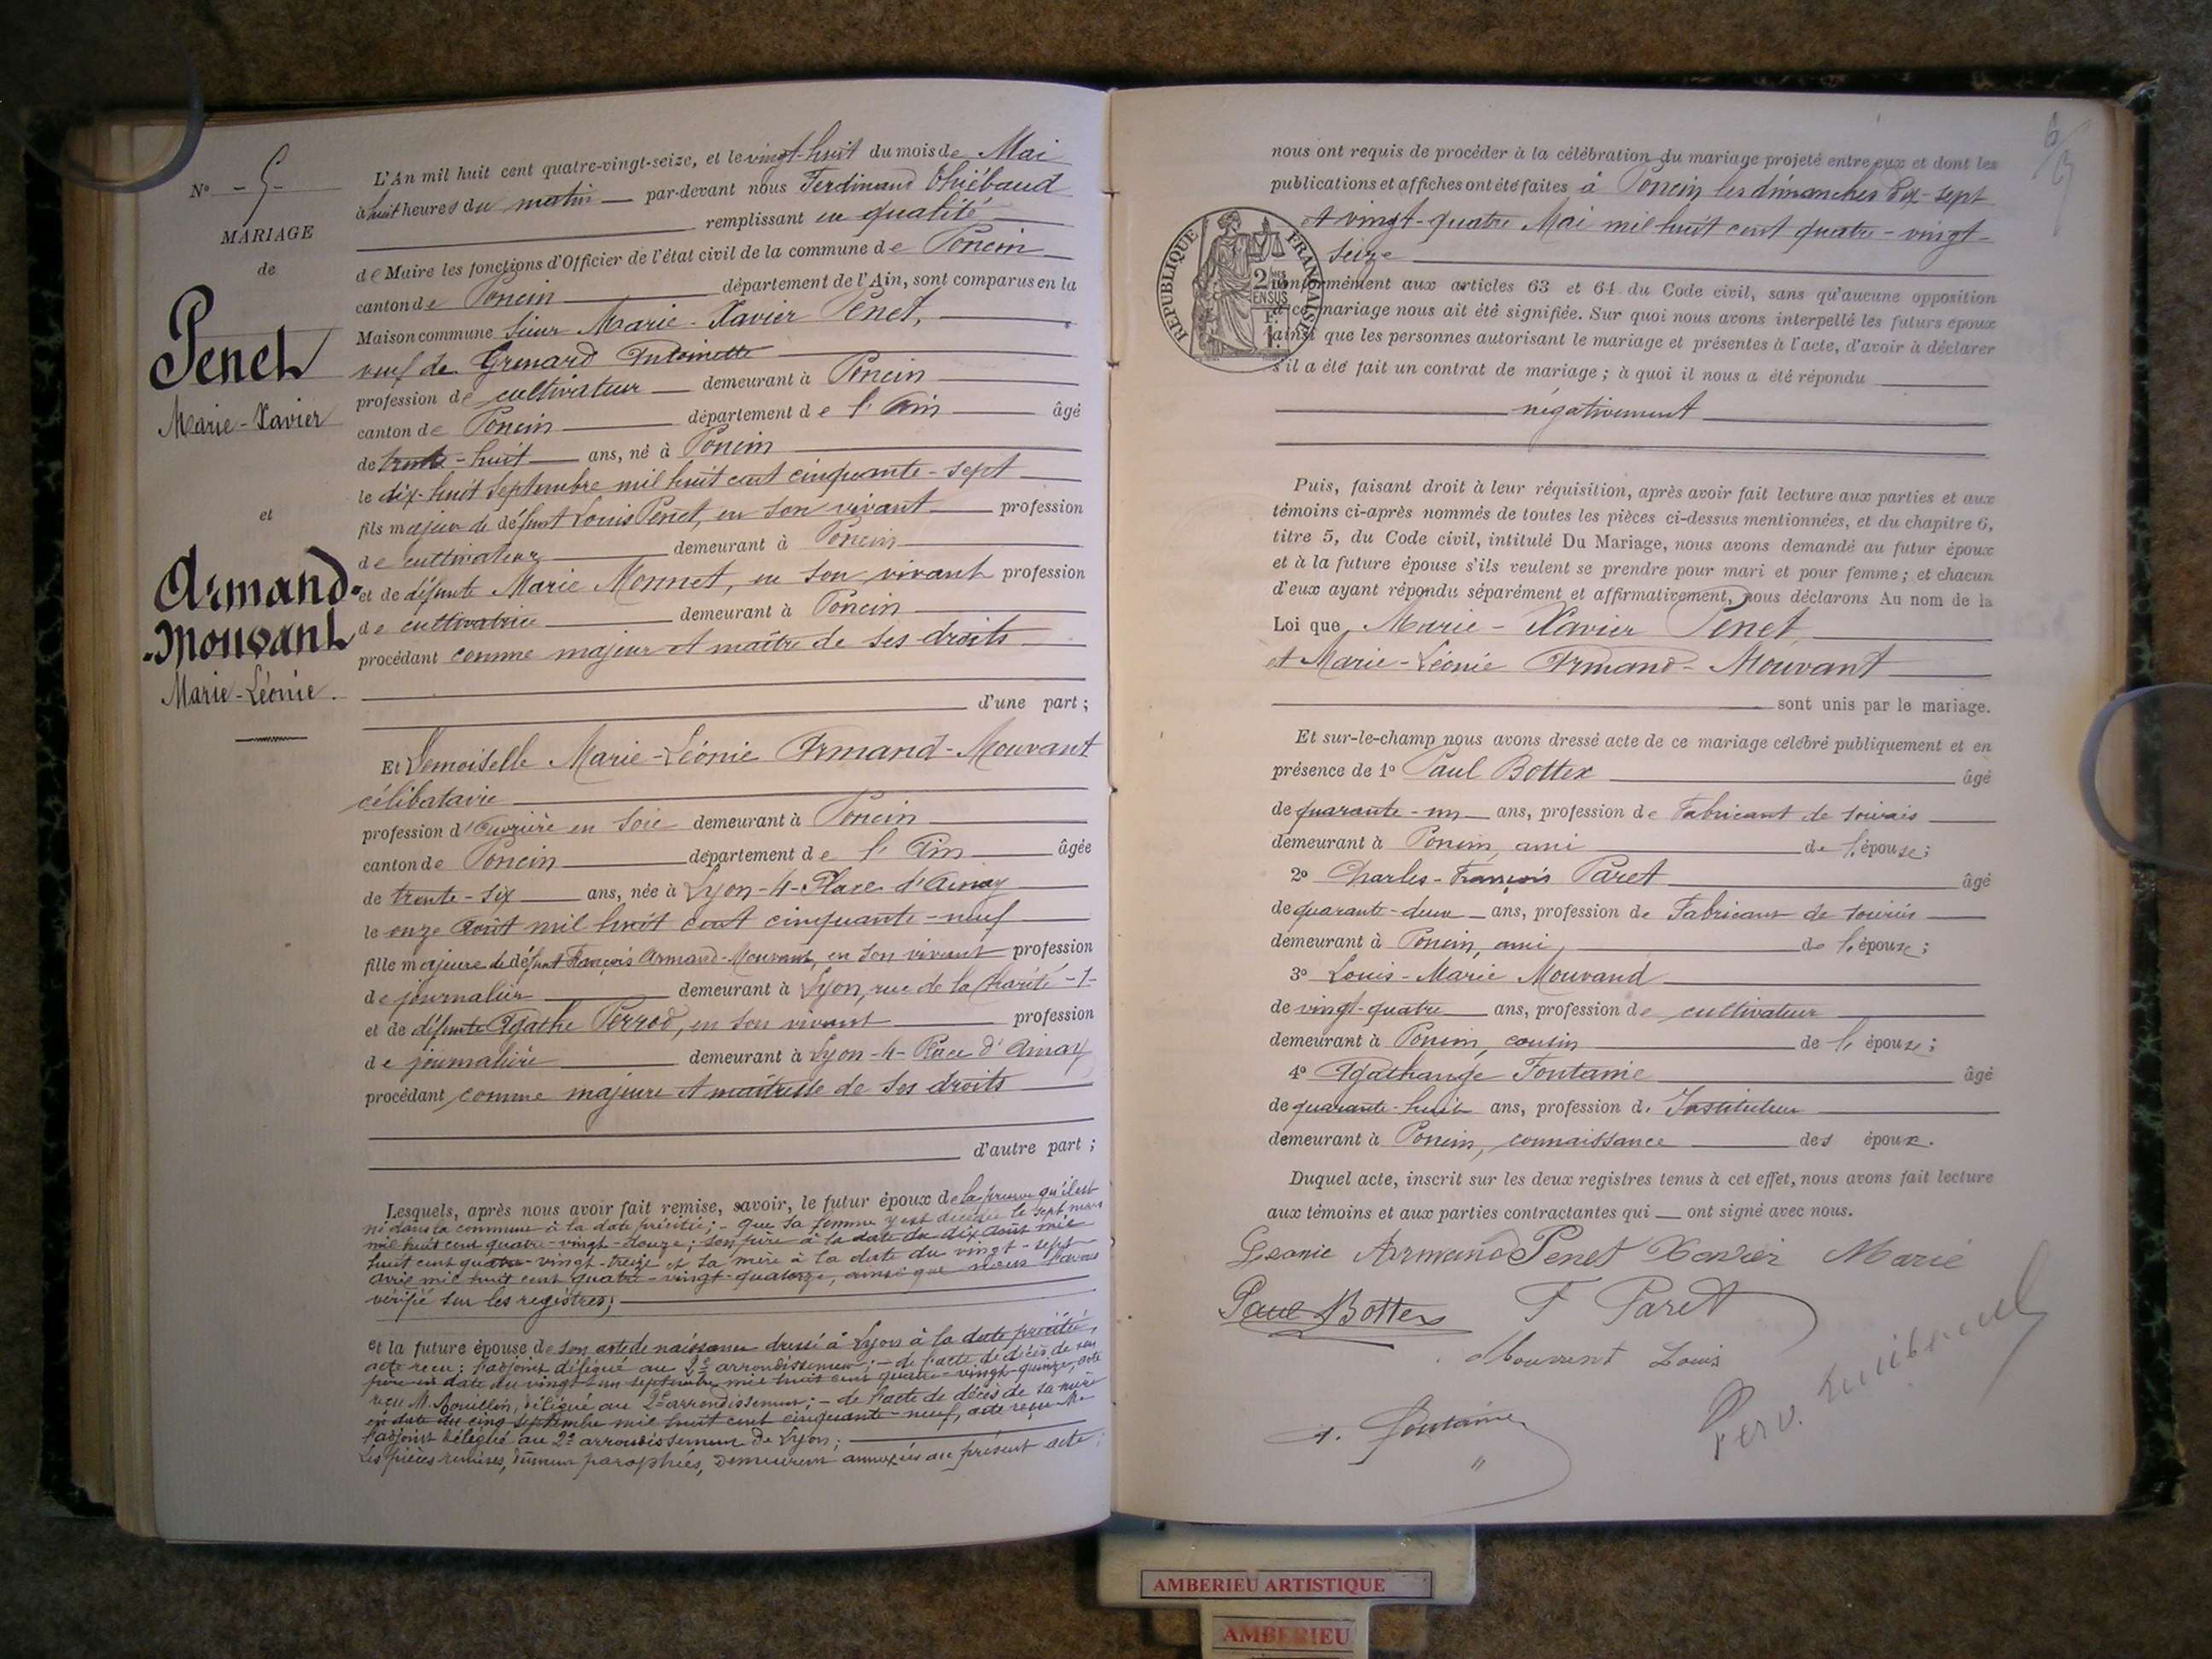 N° - 5 -
MARIAGE
de
Penet
Marie-Xavier
et
Armand-
-Mouvant
Marie-Léonie.
L'An mil huit cent quatre-vingt-seize, et le vingt-huit du mois de Mai
à huit heures du matin par-devant nous Ferdinand Thiébaud
remplissant en qualité
de Maire les fonctions d'Officier de l'état civil de la commune de Poncin
canton de Poncin département de l'Ain, sont comparus en la
Maison commune Sieur Marie-Xavier Penet,
veuf de Grenard Antoinette
profession de cultivateur demeurant à Poncin
canton de Poncin département de l'Ain âgé
de trente-huit ans, né à Poncin
le dix-huit Septembre mil huit cent cinquante-sept
fils majeur de défunt Louis Penet, en son vivant profession
de cultivateur demeurant à Poncin
et de défunte Marie Monnet, en son vivant profession
de cultivatrice demeurant à Poncin
procédant comme majeur et maître de ses droits
d'une part ;
Et Demoiselle Marie-Léonie Armand-Mouvant
célibataire
profession d'Ouvrière en Soie demeurant à Poncin
canton de Poncin département de l'Ain âgée
de trente-six ans, née à Lyon-4-Place d'Ainay
le onze Août mil huit cent cinquante-neuf
fille majeure de défunt François Armand-Mouvant, en son vivant profession
de journalier demeurant à Lyon, rue de la Charité-1-
et de défunte Agathe Perrod, en son vivant profession
de journalière demeurant à Lyon-4-Place d'Ainay
procédant comme majeure et maîtresse de ses droits
d'autre part ;
Lesquels, après nous avoir fait remise, savoir, le futur époux de la preuve qu'il est
né dans la commune à la date précitée ; - que sa femme y est décédée le sept mars
mil huit cent quatre-vingt-douze ; son père à la date du dix Août mil
huit cent quatre-vingt-treize et sa mère à la date du vingt-sept
avril mil huit cent quatre-vingt-quatorze, ainsi que nous l'avons
vérifié sur les registres ;
et la future épouse de son acte de naissance dressé à Lyon à la date précitée,
acte reçu : l'adjoint délégué au 2e arrondissement ; - de l'acte de décès de son
père en date du vingt-un septembre mil huit cent quatre-vingt-quinze, acte
reçu M. Rouillin, délégué au 2e arrondissement ; - de l'acte de décès de sa mère
en date du cinq Septembre mil huit cent cinquante-neuf, acte reçu M.
l'adjoint délégué au 2e arrondissement de Lyon ;
Les pièces remises, dûment paraphées, demeurent annexées au présent acte ;
6/3
nous ont requis de procéder à la célébration du mariage projeté entre eux et dont les
publications et affiches ont été faites à Poncin les dimanches Dix-sept
et vingt-quatre Mai mil huit cent quatre-vingt-
seize
RÉPUBLIQUE FRANÇAISE
2 10MES
EN SUS
conformément aux articles 63 et 64 du Code civil, sans qu'aucune opposition
à ce mariage nous ait été signifiée. Sur quoi nous avons interpellé les futurs époux
ainsi que les personnes autorisant le mariage et présentes à l'acte, d'avoir à déclarer
s'il a été fait un contrat de mariage ; à quoi il nous a été répondu
négativement
Puis, faisant droit à leur réquisition, après avoir fait lecture aux parties et aux
témoins ci-après nommés de toutes les pièces ci-dessus mentionnées, et du chapitre 6,
titre 5, du Code civil, intitulé Du Mariage, nous avons demandé au futur époux
et à la future épouse s'ils veulent se prendre pour mari et pour femme ; et chacun
d'eux ayant répondu séparément et affirmativement, nous déclarons Au nom de la
Loi que Marie-Xavier Penet
et Marie-Léonie Armand-Mouvant
sont unis par le mariage.
Et sur-le-champ nous avons dressé acte de ce mariage célébré publiquement et en
présence de 1° Paul Bottex âgé
de quarante-un ans, profession de Fabricant de soieries
demeurant à Poncin, ami de l'épouse ;
2° Charles-François Paret âgé
de quarante-deux ans, profession de Fabricant de soieries
demeurant à Poncin, ami, de l'épouse ;
3° Louis-Marie Mouvand
de vingt-quatre ans, profession de cultivateur
demeurant à Poncin, cousin de l'épouse ;
4° Agathange Fontaine âgé
de quarante-huit ans, profession d'Instituteur
demeurant à Poncin, connaissance des époux.
Duquel acte, inscrit sur les deux registres tenus à cet effet, nous avons fait lecture
aux témoins et aux parties contractantes qui ont signé avec nous.
Leonie Armand Penet Xavier Marie
Paul Bottex F Paret
Mouvent Louis
A. Fontaine
AMBERIEU ARTISTIQUE
AMBERIEU